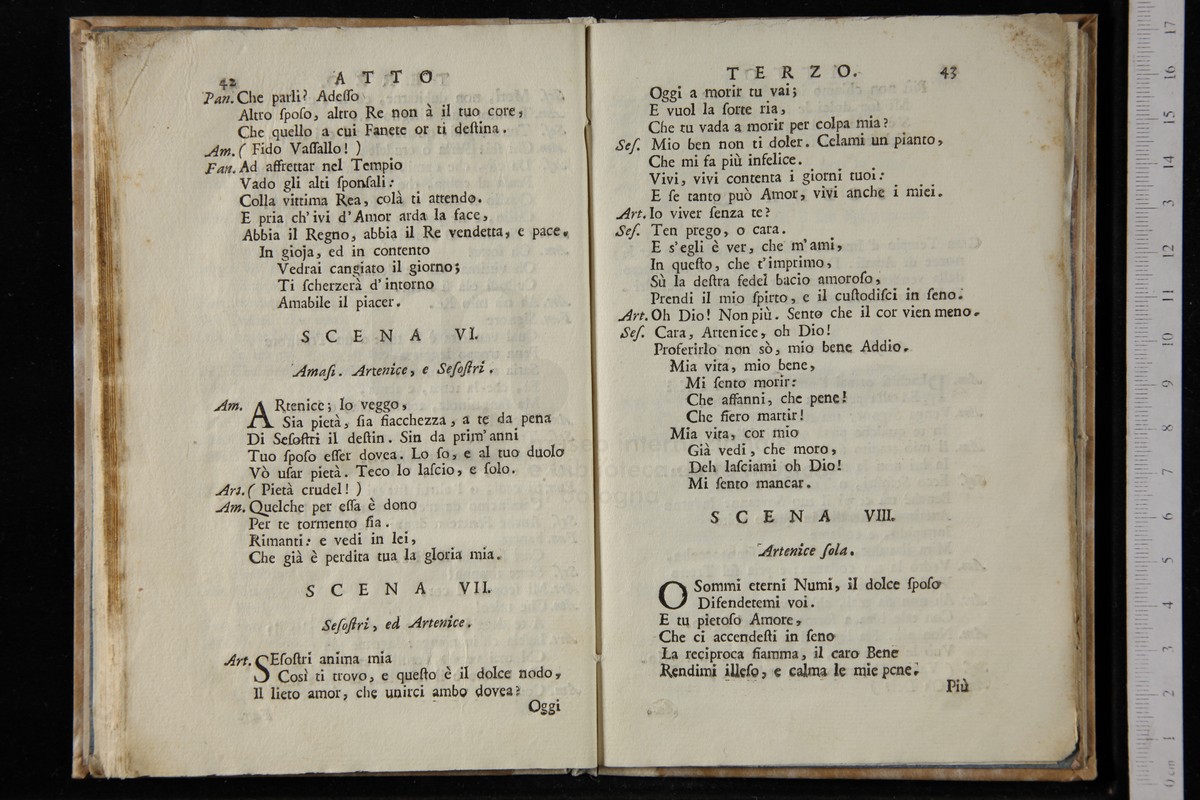 42 ATTO
Pan. Che parli? Adeſſo
Altro ſpoſo, altro Re non à il tuo core,
Che quello a cui Fanete or ti deſtina.
Am. ( Fido Vaſſallo! )
Fan. Ad affrettar nel Tempio
Vado gli alti ſponſali:
Colla vittima Rea, colà ti attendo.
E pria ch'ivi d'Amor arda la face,
Abbia il Regno, abbia il Re vendetta, e pace.
In gioja, ed in contento
Vedrai cangiato il giorno;
Ti ſcherzerà d'intorno
Amabile il piacer.
SCENA VI.
Amaſi. Artenice, e Seſoſtri.
Am. ARtenice; Io veggo,
Sia pietà, ſia fiacchezza, a te da pena
Di Seſoſtri il deſtin. Sin da prim'anni
Tuo ſpoſo eſſer dovea. Lo ſo, e al tuo duolo
Vò uſar pietà. Teco lo laſcio, e ſolo.
Art. ( Pietà crudel! )
Am. Quelche per eſſa è dono
Per te tormento ſia.
Rimanti: e vedi in lei,
Che già è perdita tua la gloria mia.
SCENA VII.
Seſoſtri, ed Artenice.
Art. SEſoſtri anima mia
Così ti trovo, e queſto è il dolce nodo,
Il lieto amor, che unirci ambo dovea?
Oggi
TERZO. 43
Oggi a morir tu vai;
E vuol la ſorte ria,
Che tu vada a morir per colpa mia?
Seſ. Mio ben non ti doler. Celami un pianto,
Che mi fa più infelice.
Vivi, vivi contenta i giorni tuoi:
E ſe tanto può Amor, vivi anche i miei.
Art. Io viver ſenza te?
Seſ. Ten prego, o cara.
E s'egli è ver, che m'ami,
In queſto, che t'imprimo,
Sù la deſtra fedel bacio amoroſo,
Prendi il mio ſpirto, e il cuſtodiſci in ſeno.
Art. Oh Dio! Non più. Sento che il cor vien meno.
Seſ. Cara, Artenice, oh Dio!
Proferirlo non sò, mio bene Addio.
Mia vita, mio bene,
Mi ſento morir:
Che affanni, che pene!
Che fiero martir!
Mia vita, cor mio
Già vedi, che moro,
Deh laſciami oh Dio!
Mi ſento mancar.
SCENA VIII.
Artenice ſola.
O Sommi eterni Numi, il dolce ſpoſo
Difendetemi voi.
E tu pietoſo Amore,
Che ci accendeſti in ſeno
La reciproca fiamma, il caro Bene
Rendimi illeſo, e calma le mie pene.
Più